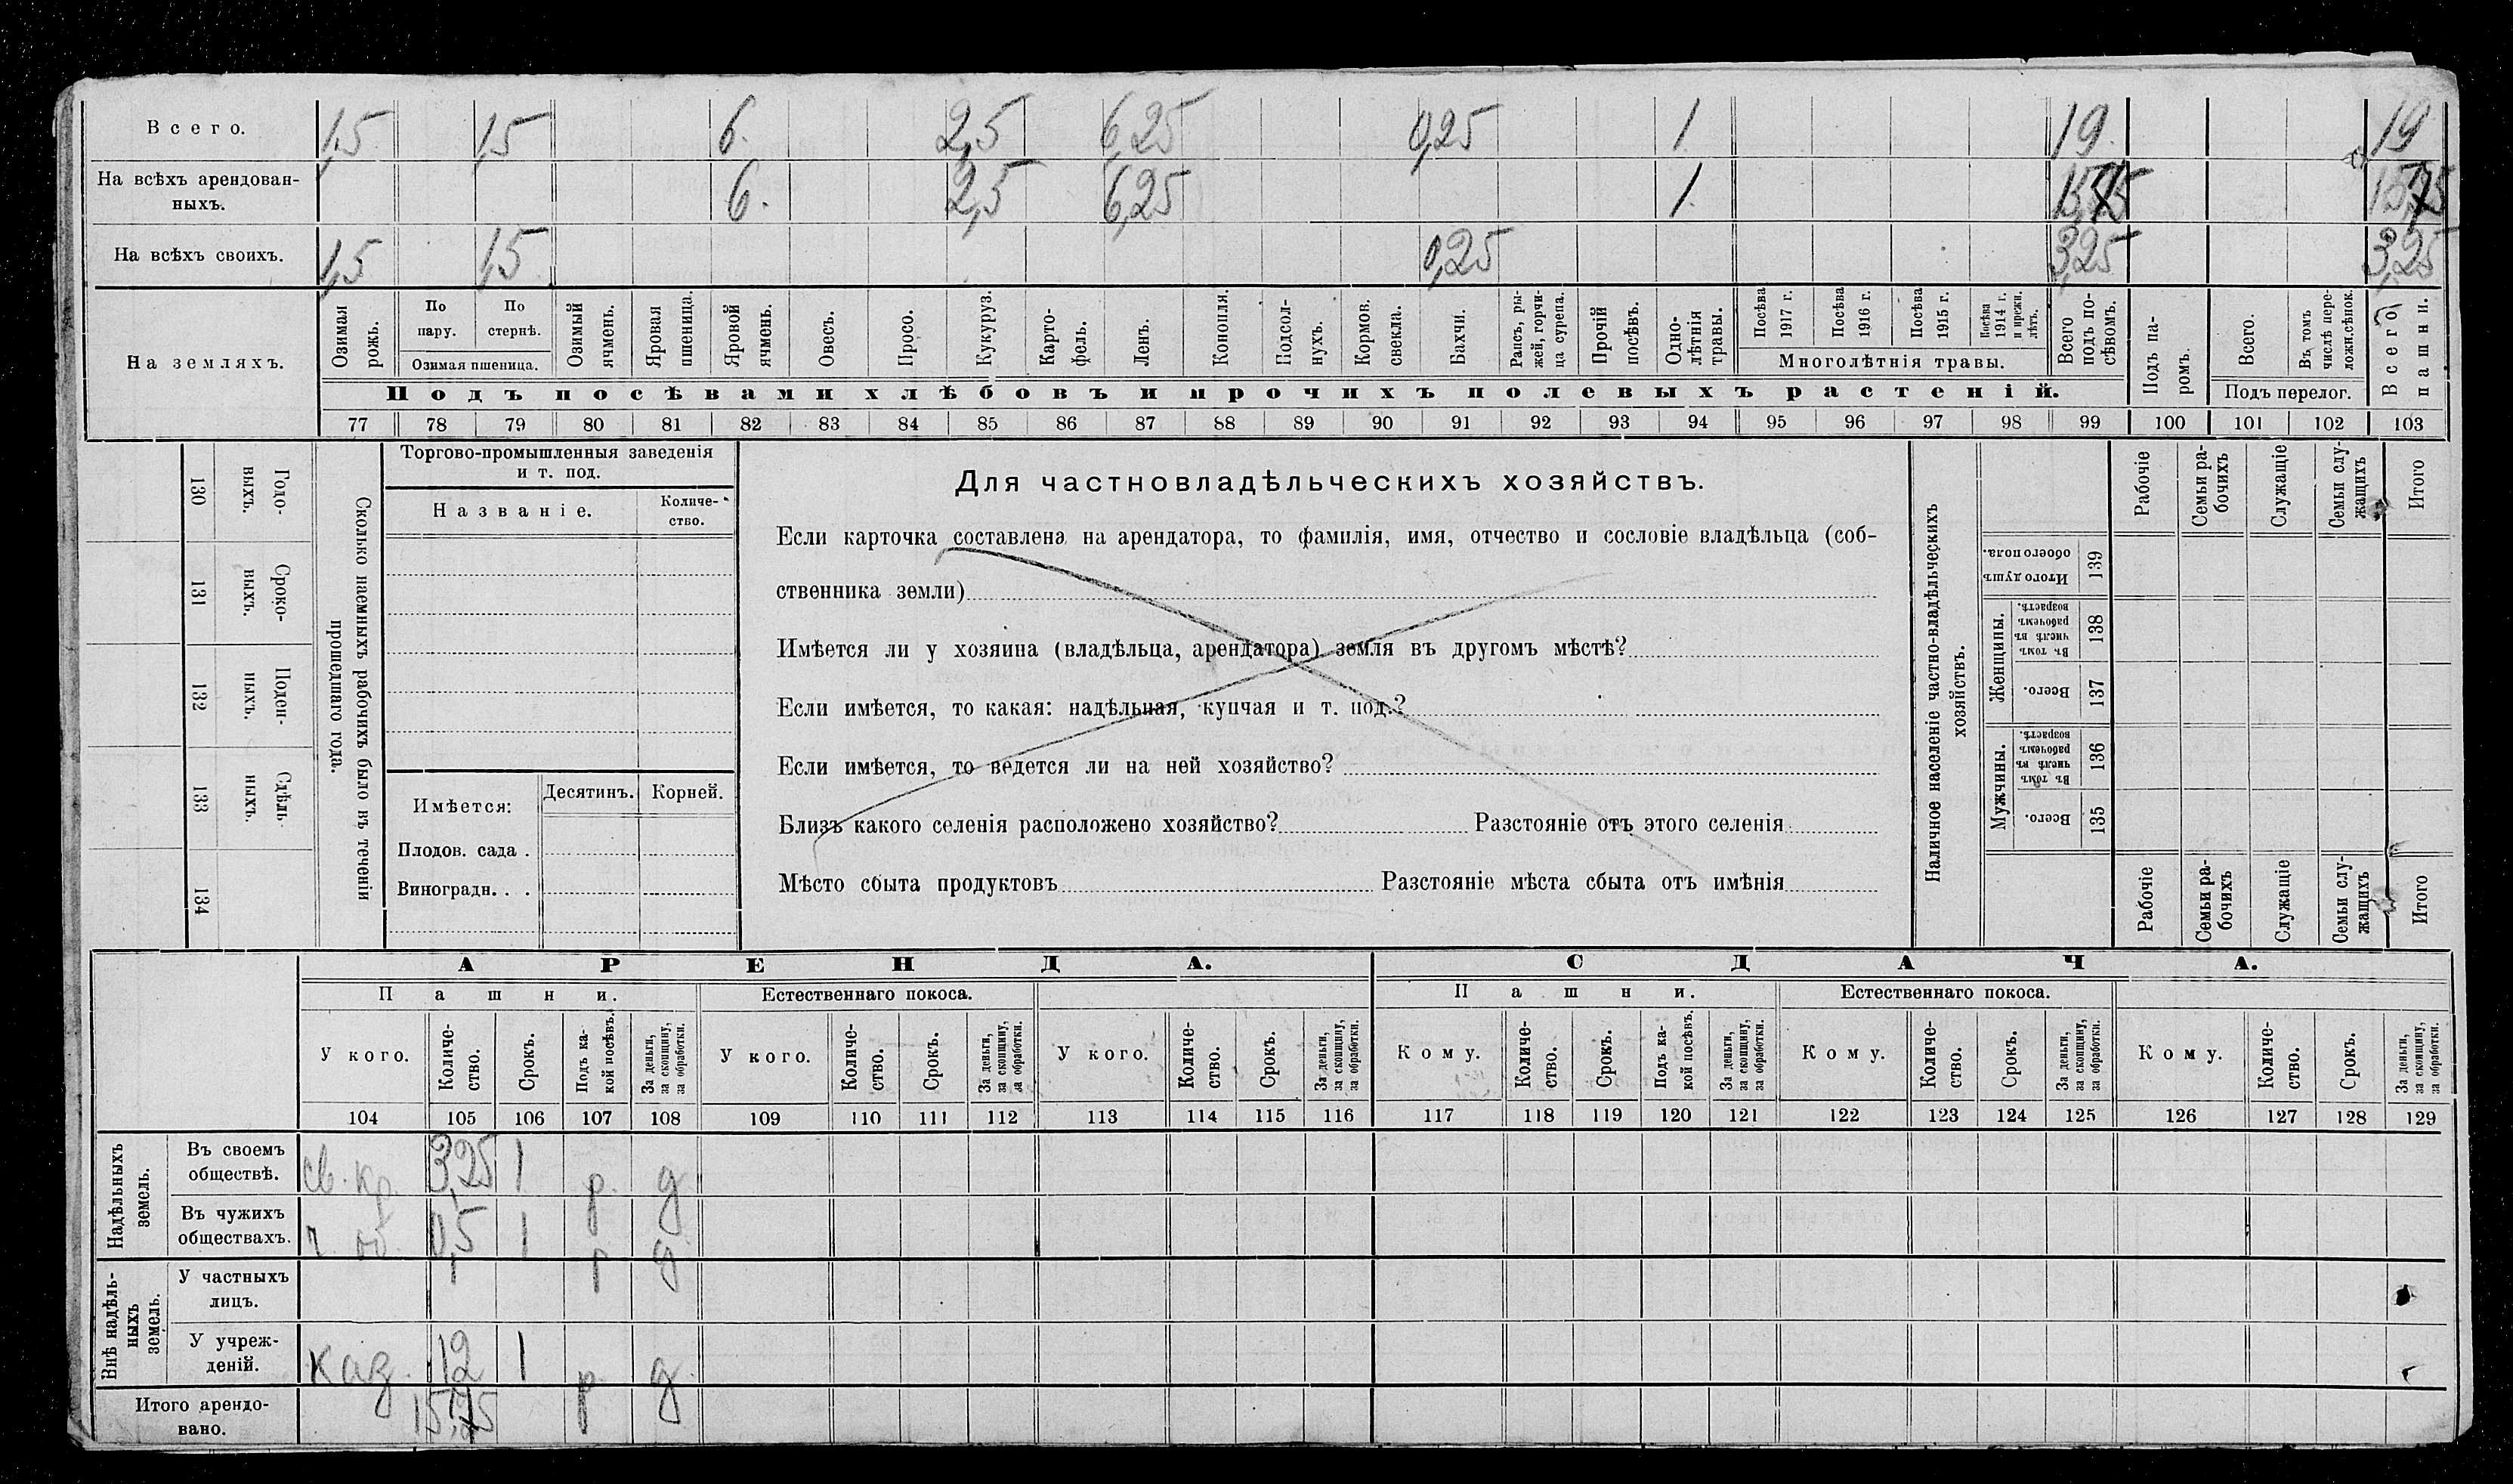 Всего. 1,5 1,5 6. 2,5 6,25 0,25 1. 19. 19
На всѣхъ арендован-
ныхъ. 6. 2,5 6,25 1.
На всѣхъ своихъ. 1,5 1,5 0,25 3,25 3,25
На земляхъ.
Озимая
рожь.
По
пару.
По
стернѣ.
Озимая пшеница.
Озимый
ячмень.
Яровая
пшеница.
Яровой
ячмень.
Овесъ.
Просо.
Кукуруз.
Карто-
фель.
Ленъ.
Конопля.
Подсол-
нухъ.
Кормов.
свекла.
Бахчи.
Рапсъ, ры-
жей, горчи-
ца сурепа.
Прочій
посѣвъ.
Одно-
лѣтнія
травы.
Посѣва
1917 г.
Посѣва
1916 г.
Посѣва
1915 г.
Посѣва
1914 г.
и прежн.
лѣтъ.
Многолѣтнія травы.
Всего
подъ по-
сѣвомъ.
Подъ па-
ромъ.
Всего.
Въ томъ
числѣ пере-
ложн.сѣнок.
Подъ перелог.
Всего
пашни.
Подъ посѣвами хлѣбовъ и прочихъ полевыхъ растеній.
77 78 79 80 81 82 83 84 85 86 87 88 89 90 91 92 93 94 95 96 97 98 99 100 101 102 103
Годо-
выхъ.
130
Сроко-
ныхъ.
131
Поден-
ныхъ.
132
Сдѣль-
ныхъ.
133
134
Сколько наемныхъ рабочихъ было въ теченіи
прошедшаго года.
Торгово-промышленныя заведенія
и т. под.
Названіе.
Количе-
ство.
Имѣется:
Десятинъ. Корней.
Плодов. сада .
Виноградн. . .
Для частновладѣльческихъ хозяйствъ.
Если карточка составлена на арендатора, то фамилія, имя, отчество и сословіе владѣльца (соб-
ственника земли)
Имѣется ли у хозяина (владѣльца, арендатора) земля въ другомъ мѣстѣ?
Если имѣется, то какая: надѣльная, купчая и т. под.?
Если имѣется, то ведется ли на ней хозяйство?
Близъ какого селенія расположено хозяйство? Разстояніе отъ этого селенія
Мѣсто сбыта продуктовъ Разстояніе мѣста сбыта отъ имѣнія
Наличное населеніе частно-владѣльческихъ
хозяйствъ.
Рабочіе
Семьи ра-
бочихъ
Служащіе
Семьи слу-
жащихъ
Итого
Итого душъ
обоего пола.
139
Женщины.
Въ томъ
числѣ въ
рабочемъ
возрастѣ.
138
Всего.
137
Мужчины.
Въ томъ
числѣ въ
рабочемъ
возрастѣ.
136
Всего.
135
Рабочіе
Семьи ра-
бочихъ
Служащіе
Семьи слу-
жащихъ
Итого
АРЕНДА. СДАЧА.
Пашни. Естественнаго покоса. Пашни. Естественнаго покоса.
У кого.
Количе-
ство.
Срокъ.
Подъ ка-
кой посѣвъ.
За деньги,
за скопщину,
за обработки.
У кого.
Количе-
ство.
Срокъ.
За деньги,
за скопщину,
за обработки.
У кого.
Количе-
ство.
Срокъ.
За деньги,
за скопщину,
за обработки.
Кому.
Количе-
ство.
Срокъ.
Подъ ка-
кой посѣвъ.
За деньги,
за скопщину,
за обработки.
Кому.
Количе-
ство.
Срокъ.
За деньги,
за скопщину,
за обработки.
Кому.
Количе-
ство.
Срокъ.
За деньги,
за скопщину,
за обработки.
104 105 106 107 108 109 110 111 112 113 114 115 116 117 118 119 120 121 122 123 124 125 126 127 128 129
Надѣльныхъ
земель.
Въ своемъ
обществѣ. св. кр. 3,25 1 р. д
Въ чужихъ
обществахъ. ч. об. 0,5 1 р д
Внѣ надѣль-
ныхъ
земель.
У частныхъ
лицъ.
У учреж-
деній. каз. 12 1 р. д.
Итого арендо-
вано.